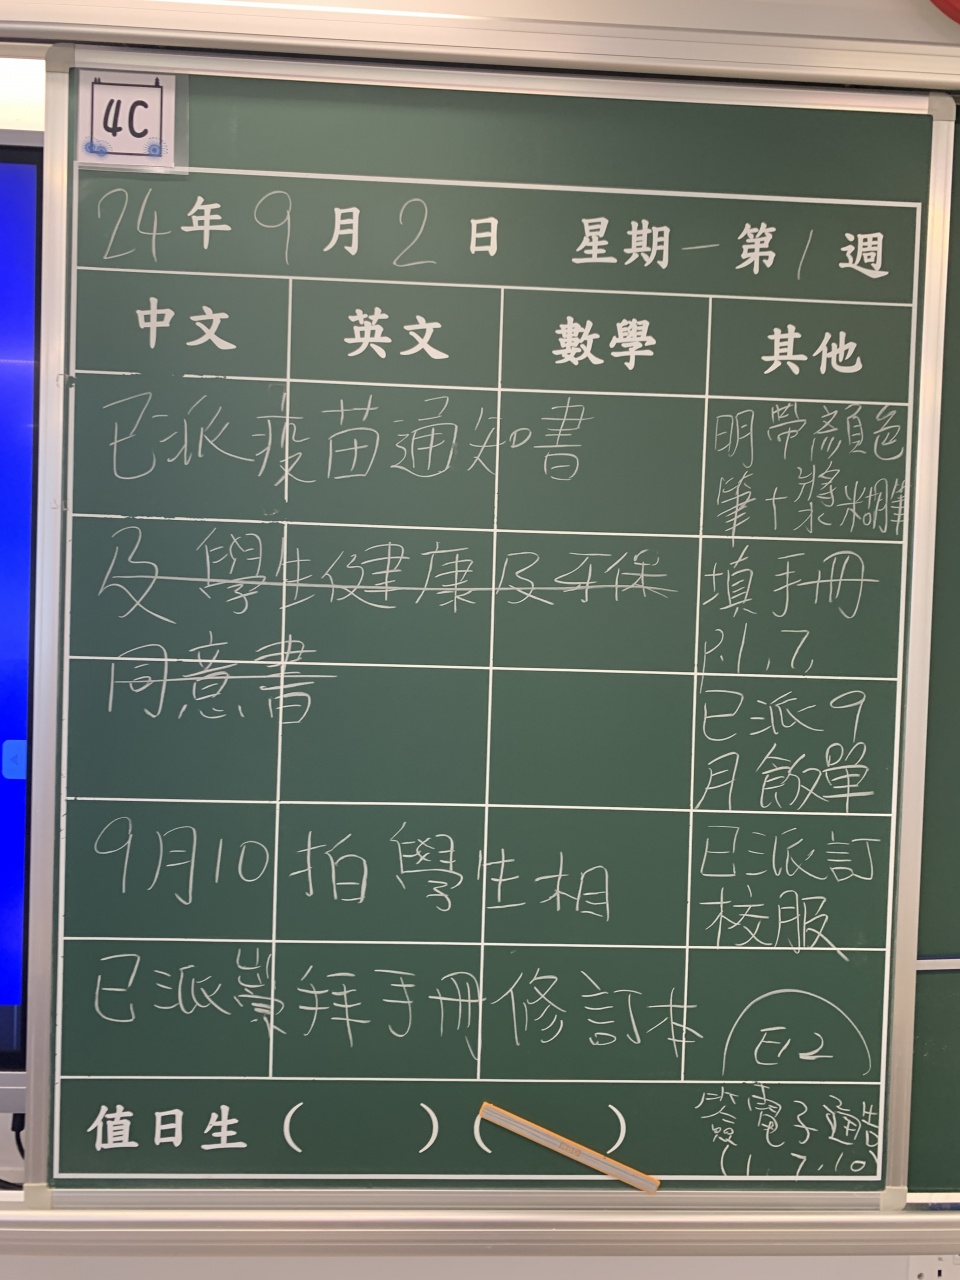 4C
24年9月2日 星期一第1週
中文 英文 數學 其他
已派疫苗通知書
明帶顏色
筆+漿糊筆
及學生健康及牙保
同意書
填手冊
p.1,7,
已派9
月飯單
9月10拍學生相
已派訂
校服
已派崇拜手冊修訂本
E12
值日生( )( )
簽電子通告
(1,7,10)